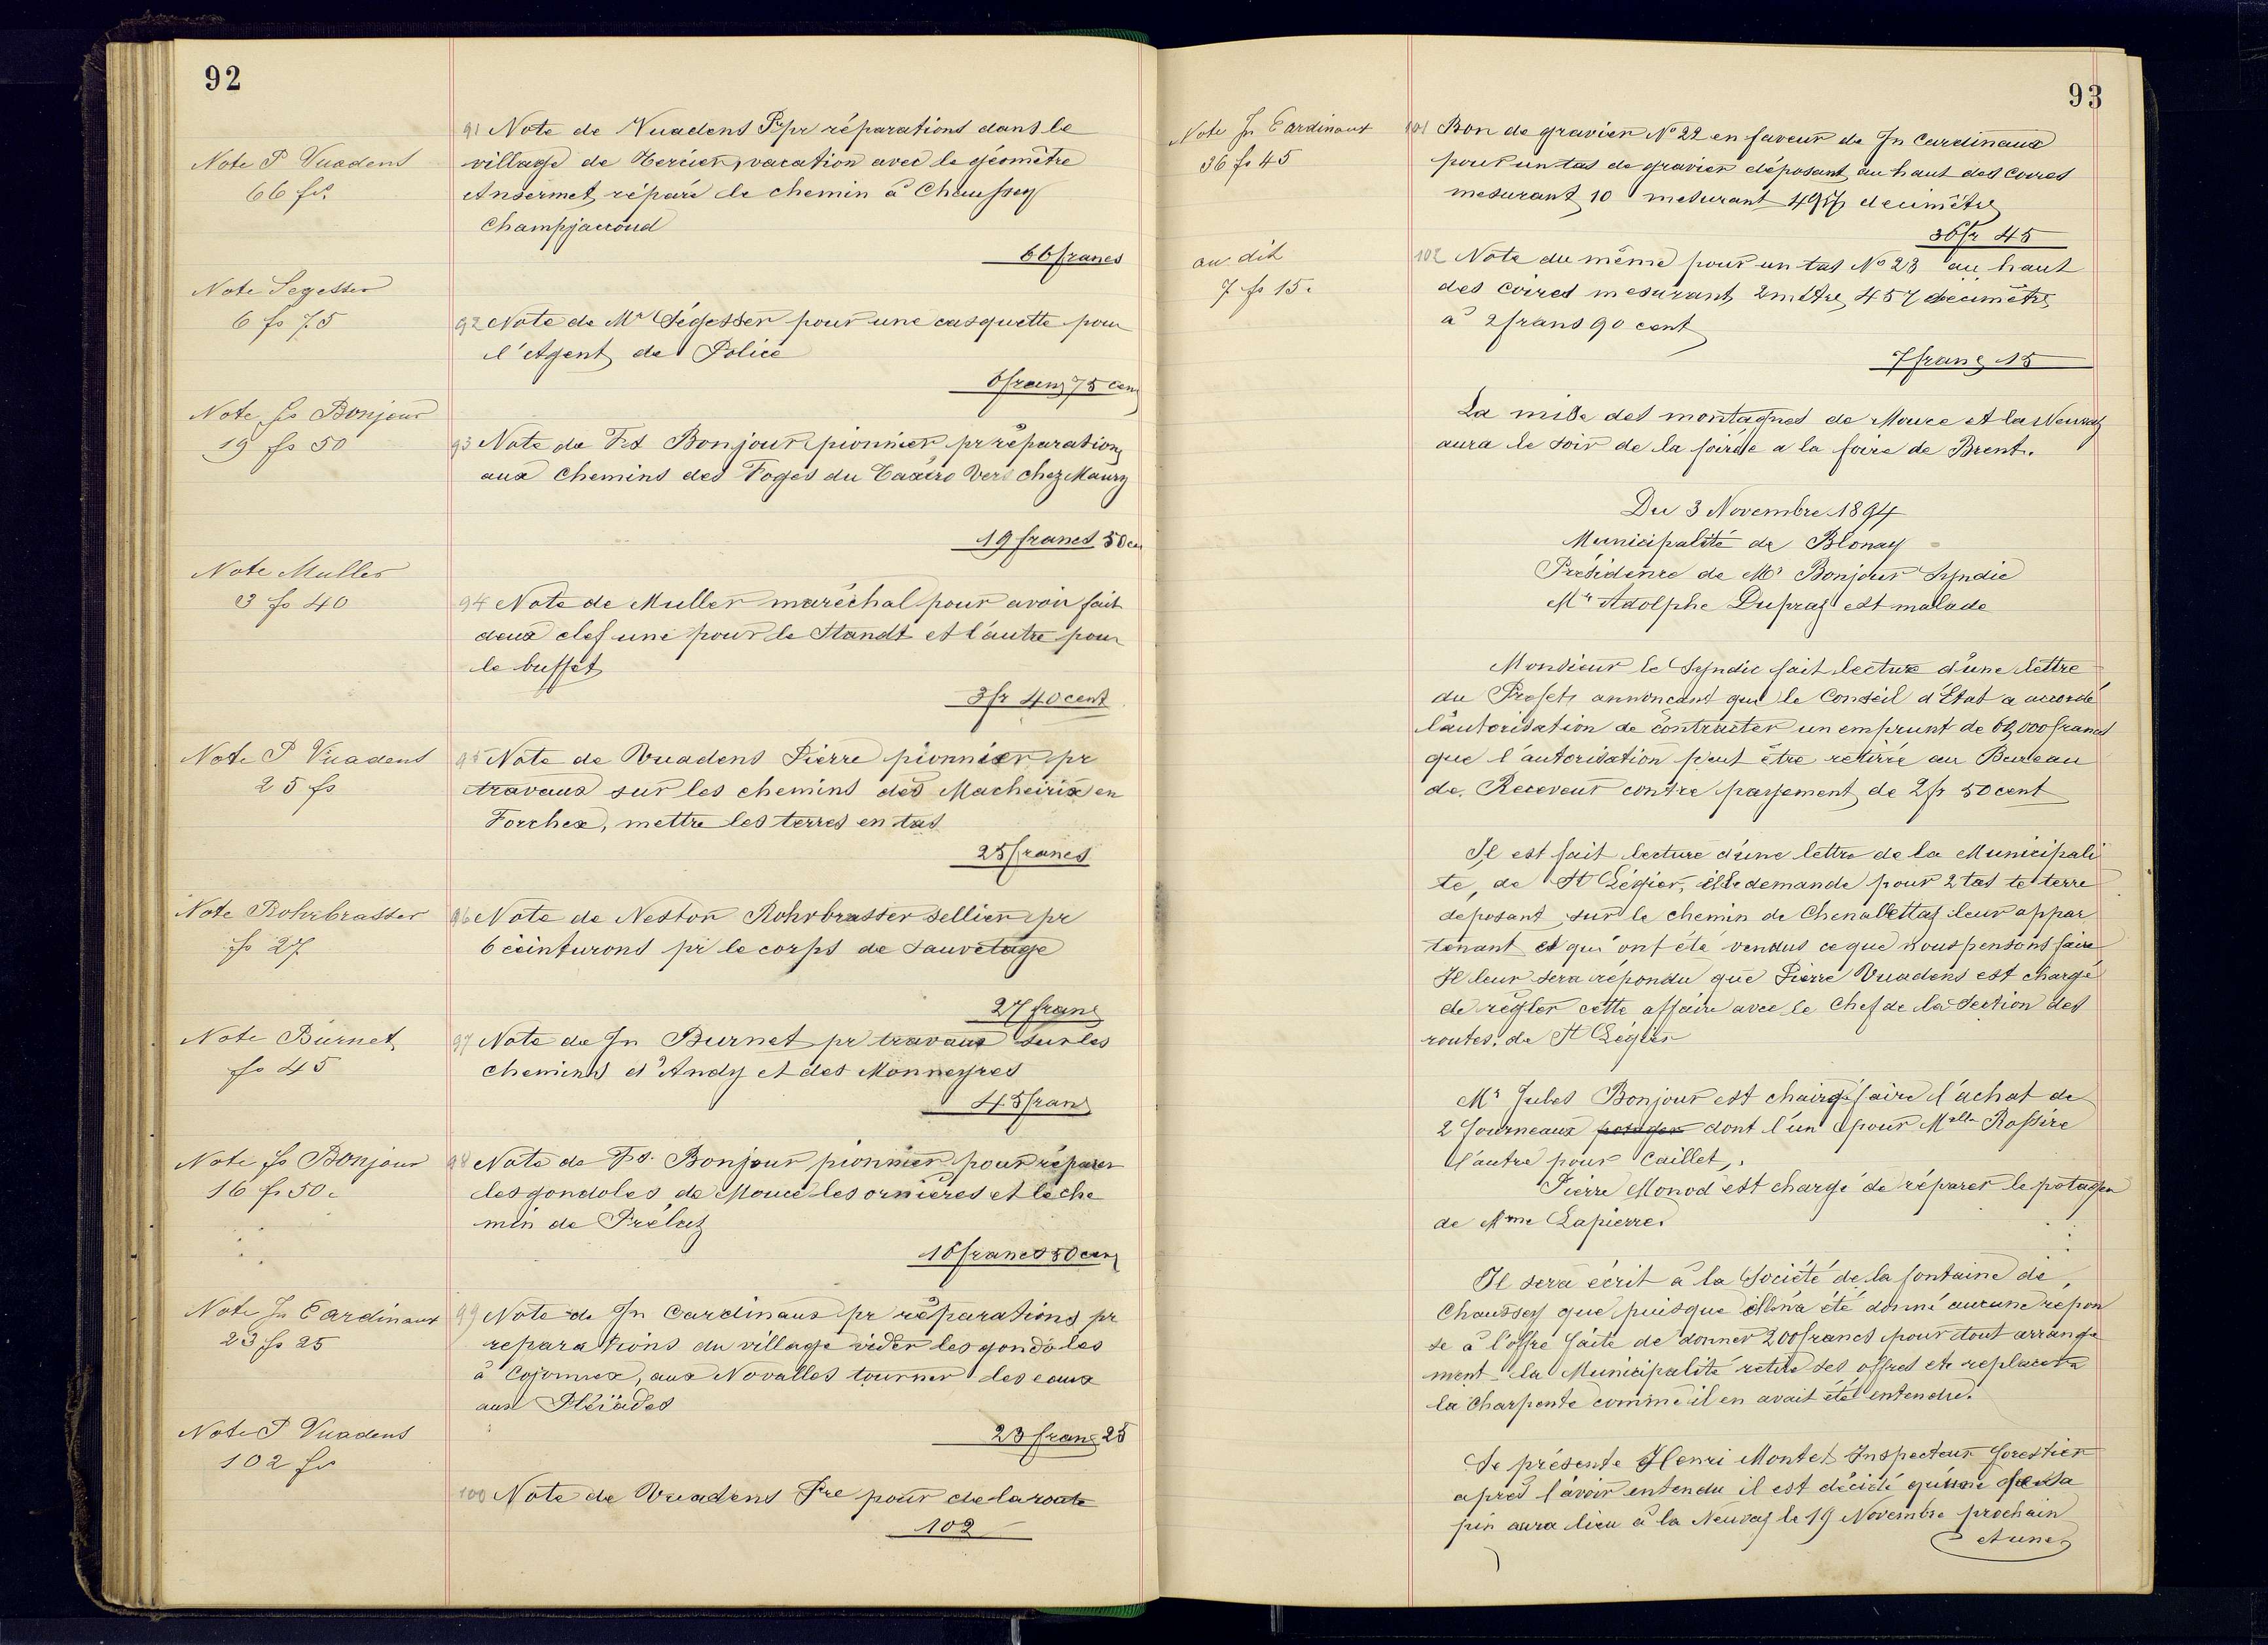 92
Note P Vuadens
66 frs
91 Note de Vuadens Pre pr réparations dans le
village de Tercier, vacation avec le géomètre
Ansermet, réparé le chemin à Chaussey
Champjaccoud
66 francs
Note Segesser
6 fs 75
92 Note de Mr Ségesser pour une casquette pour
l'Agent de Police
6 francs 75 cent
Note fs Bonjour
19 fs 50
93 Note de Fs Bonjour pionnier pr réparations
aux chemins des Foges du vers chez Maury
19 francs 50 cen
Note Muller
3 fs 40
94 Note de Muller maréchal pour avoir fait
deux clef une pour le Standt et l'autre pour
le buffet
3 fr 40 cent
Note P Vuadens
25 fs
95 Note de Vuadens Pierre pionnier pr
travaux sur les chemins des Macheirix en
Forchex, mettre les terres en tas
25 francs
Note Rohrbrasser
fs 27
96 Note de Nestor Rohrbrasser sellier pr
6 ceinturons pr le corps de sauvetage
27 franc
Note Burnet
fs 45
97 Note de Jn Burnet pr travaux sur les
chemins d'Andy et des Monneyres
45 franc
Note fs Bonjour
16 fr 50 c
98 Note de Fs. Bonjour pionnier pour réparer
les gondoles de Mouce les ornières et le che
min de Prélaz
16 francs 50 cen
Note Jn Cardinaux
23 fs 25
99 Note de Jn Cardinaux pr réparations pr
reparations du village vider les gondoles
à Cojonnex, aux Novalles tourner les eaux
aux Pléïades
23 franc 25
Note P Vuadens
102 frs
100 Note de Vuadens Pre pour de la route
102
93
Note Jn Cardinaux
36 fs 45
101 Bon de gravier No 22 en faveur de Jn Cardinaux
pour un tas de gravier déposant au haut des Coires
mesurant 10 mesurant 497 decimètre
36 fr 45
au dit
7 fs 15 c
102 Note du même pour un tas No 23 au haut
des Coires mesurant 2 mètre 457 decimètre
à 2 frans 90 cent
7 franc 15
La mise des montagnes de Mouce et la Neuvaz
aura le soir de la foirée a la foire de Brent.
Du 3 Novembre 1894
Municipalité de Blonay
Présidence de Mr Bonjour Syndic
Mr Adolphe Dupraz est malade
Monsieur le Syndic fait lecture d'une lettre
du Prefet annoncant que le Conseil d'Etat a accordé
l'autorisation de contracter un emprunt de 000 francs
que l'autorisation peut être retirée au Bureau
de Receveur contre payement de 2 fr 50 cent
Il est fait lecture d'une lettre de la Municipali
té, de St Légier, elle demande pour 2 tas te terre
déposant sur le chemin de Chenallettaz leur appar
tenant et qui ont été vendus ce que nous pensons faire
Il leur sera répondu que Pierre Vuadens est chargé
de régler cette affaire avec le Chef de la section des
routes de St Légier
Mr Jules Bonjour est chairgé faire l'achat de
2 fourneaux potager dont l'un pour Melle Rossire
l'autre pour Caillet,
Pierre Monod est chargé de réparer le potager
de Mme Lapierre
Il sera écrit à la Société de la fontaine de
Chaussey que puisque il n'a été donné aucune répon
se à l'offre faite de donner 200 francs pour tout arrange
ment la Municipalité retire ses offres et replacera
la Charpente comme il en avait été entendu.
Se présente Henri Montet Inspecteur forestier
après l'avoir entendu il est décidé qu'une
pin aura lieu à la Neuvaz le 19 Novembre prochain